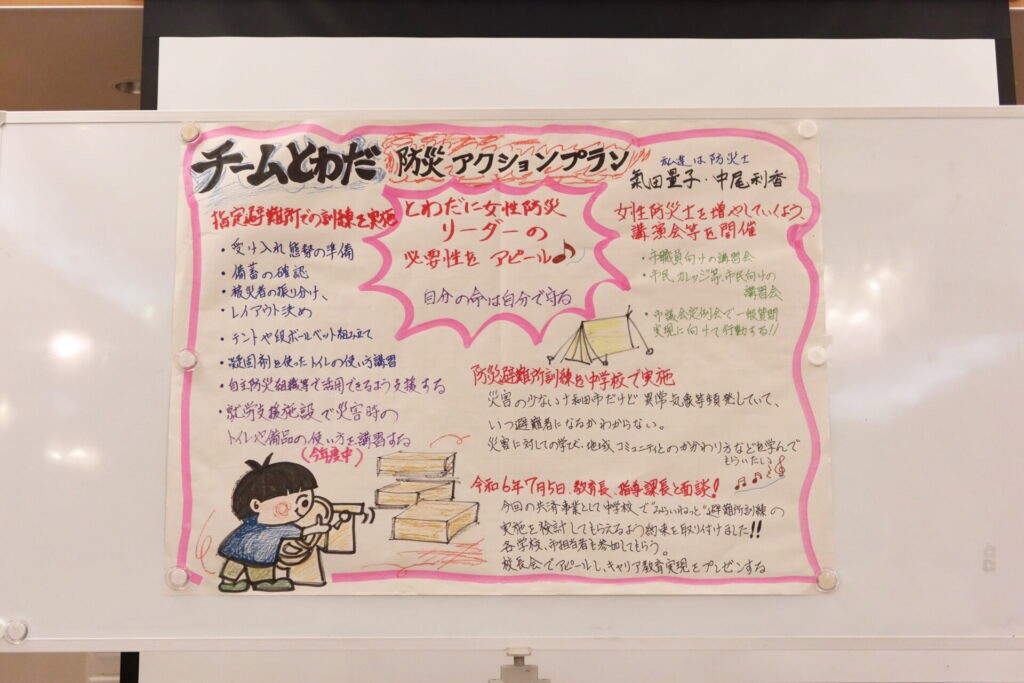 チームとわだ 防災アクションプラン
私達は防災士
氣田量子・中尾利香
指定避難所での訓練を実施
・受け入れ態勢の準備
・備蓄の確認
・被災者の振り分け、
・レイアウト決め
・テントや段ボールベット組み立て
・凝固剤を使ったトイレの使い方講習
・自主防災組織等で活用できるよう支援する
・就労支援施設で災害時の
トイレや備品の使い方を講習する
(今年度中)
とわだに女性防災
リーダーの
必要性をアピール♪
自分の命は自分で守る
女性防災士を増やしていくよう、
講演会等を開催
・市職員向けの講習会
・市民カレッジ等、市民向けの
講習会
・市議会定例会で一般質問
実現に向けて行動する!!
防災避難所訓練を中学校で実施
災害の少ない十和田市だけど異常気象等頻発していて、
いつ避難者になるかわからない。
災害に対しての学び、地域コミュニティとのかかわり方などを学んで
もらいたい
令和6年7月5日、教育長、指導課長と面談!
今回の共済事業として中学校で"みらいねっと"避難所訓練の
実施を検討してもらえるよう約束を取り付けました!!
各学校、市担当者も参加してもらう。
校長会でアピールし、キャリア教育実現をプレゼンする